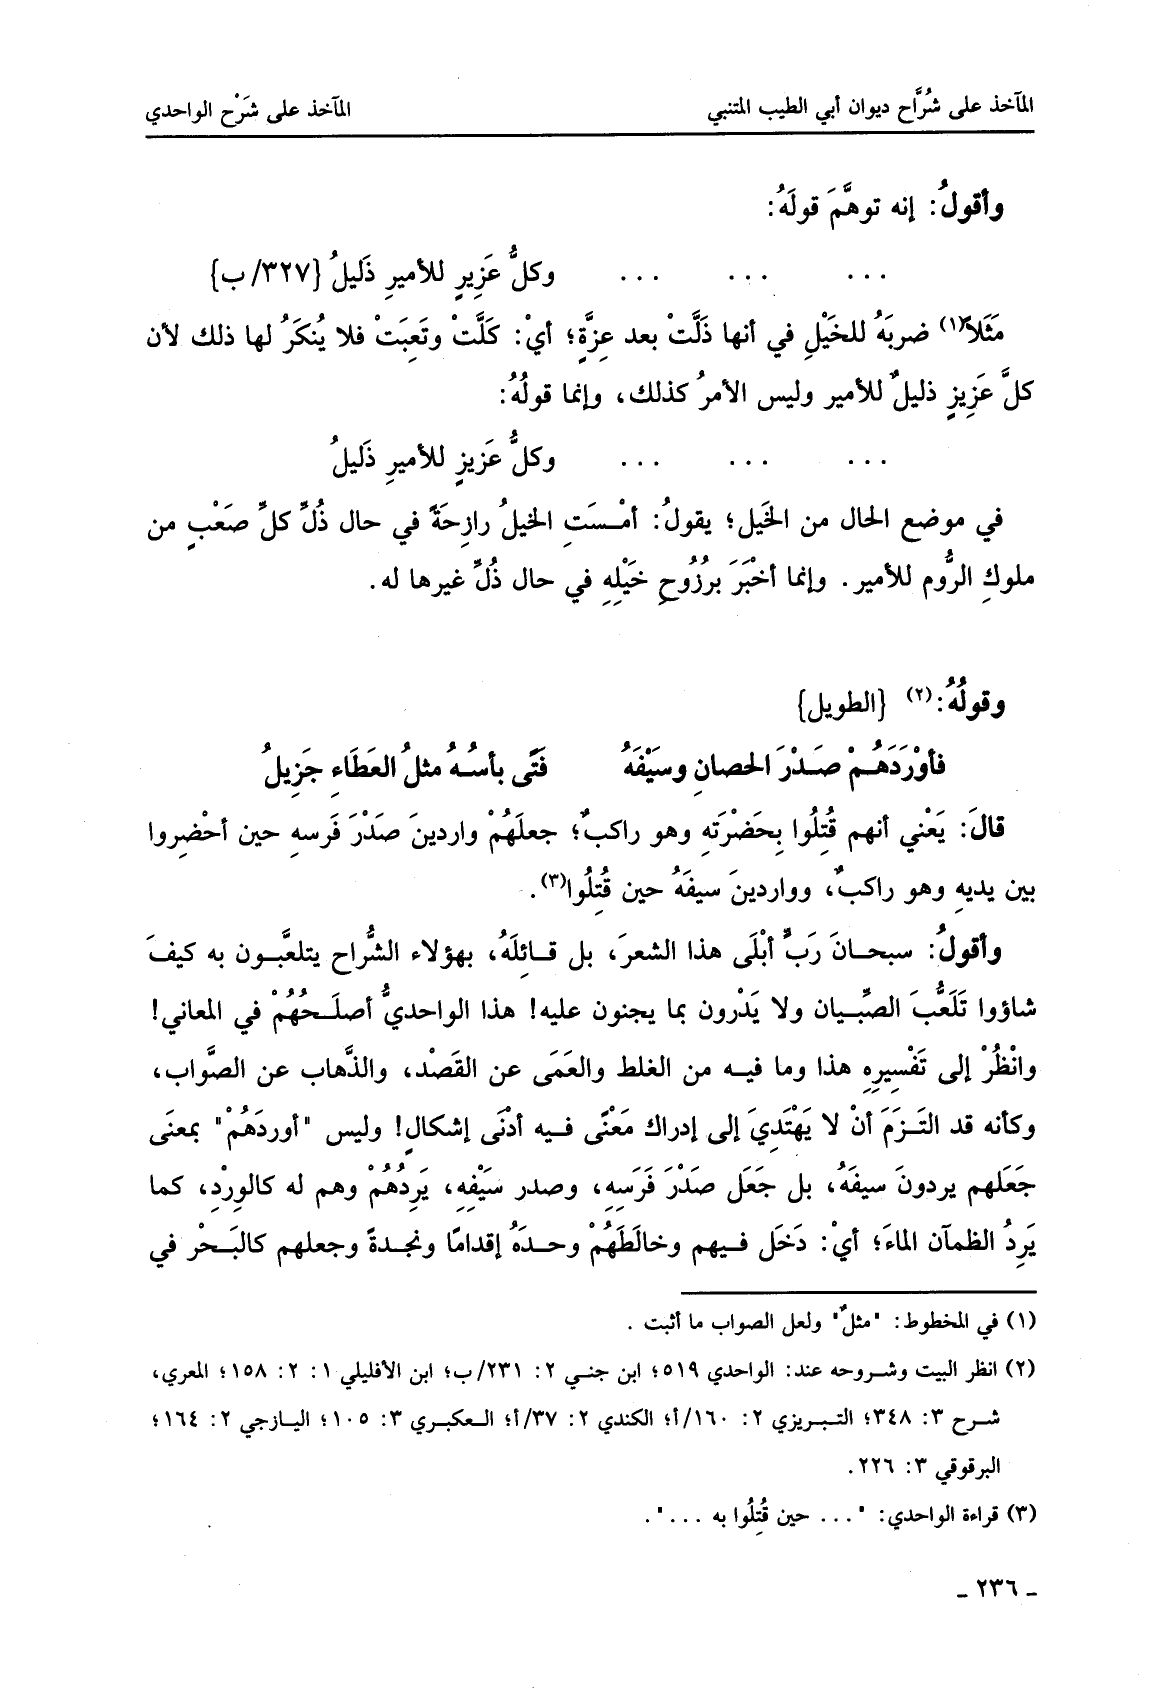 المآخذ على شُرَّاح ديوان أبي الطيب المتنبي المآخذ على شَرْح الواحدي
وأقولُ: إنه توهَّمَ قولَهُ:
... ... ... وكلُّ عَزِيزٍ للأميرِ ذَليلُ {٣٢٧/ب}
مَثَلاً(١) ضربَهُ للخَيْلِ في أنها ذَلَّتْ بعد عِزَّةٍ؛ أيْ: كَلَّتْ وتَعِبَتْ فلا يُنكَرُ لها ذلك لأن
كلَّ عَزِيزٍ ذليلٌ للأمير وليس الأمرُ كذلك، وإنما قولُهُ:
... ... ... وكلُّ عَزيزٍ للأميرِ ذَليلُ
في موضع الحال من الخَيل؛ يقولُ: أمْسَتِ الخيلُ رازِحَةً في حال ذُلِّ كلِّ صَعْبٍ من
ملوكِ الرُّوم للأمير. وإنما أخْبَرَ برُزُوحِ خَيْلِهِ في حال ذُلِّ غيرها له.
وقولُهُ:(٢) {الطويل}
فأوْرَدَهُمْ صَدْرَ الحصانِ وسَيْفَهُ فَتًى بأسُهُ مثلُ العَطَاءِ جَزِيلُ
قالَ: يَعْني أنهم قُتِلُوا بِحَضْرَتِهِ وهو راكبٌ؛ جعلَهُمْ واردينَ صَدْرَ فَرسهِ حين أحْضِروا
بين يديهِ وهو راكبٌ، وواردينَ سيفَهُ حين قُتِلُوا(٣).
وأقولُ: سبحانَ رَبٍّ أبْلَى هذا الشعرَ، بل قائلَهُ، بهؤلاء الشُّراح يتلعَّبون به كيفَ
شاؤوا تَلَعُّبَ الصِّبيان ولا يَدْرون بما يجنون عليه! هذا الواحديُّ أصلَحُهُمْ في المعاني!
وانْظُرْ إلى تَفْسِيرِهِ هذا وما فيه من الغلط والعَمَى عن القَصْد، والذَّهاب عن الصَّواب،
وكأنه قد التَزَمَ أنْ لا يَهْتَدِيَ إلى إدراك مَعْنًى فيه أدْنَى إشكالٍ! وليس "أوردَهُمْ" بمعنَى
جَعَلهم يردونَ سيفَهُ، بل جَعَل صَدْرَ فَرَسِهِ، وصدر سَيْفِهِ، يَرِدُهُمْ وهم له كالوِرْدِ، كما
يَرِدُ الظمآن الماءَ؛ أيْ: دَخَل فيهم وخالَطَهُمْ وحدَهُ إقدامًا ونجدةً وجعلهم كالبَحْر في
(١) في المخطوط: "مثلٌ" ولعل الصواب ما أثبت .
(٢) انظر البيت وشروحه عند: الواحدي ٥١٩؛ ابن جني ٢: ٢٣١/ب؛ ابن الأفليلي ١: ٢: ١٥٨؛ المعري،
شرح ٣: ٣٤٨؛ التبريزي ٢: ١٦٠/أ؛ الكندي ٢: ٣٧/أ؛ العكبري ٣: ١٠٥؛ اليازجي ٢: ١٦٤؛
البرقوقي ٣: ٢٢٦.
(٣) قراءة الواحدي: "... حين قُتِلُوا به ...".
ـ ٢٣٦ ـ